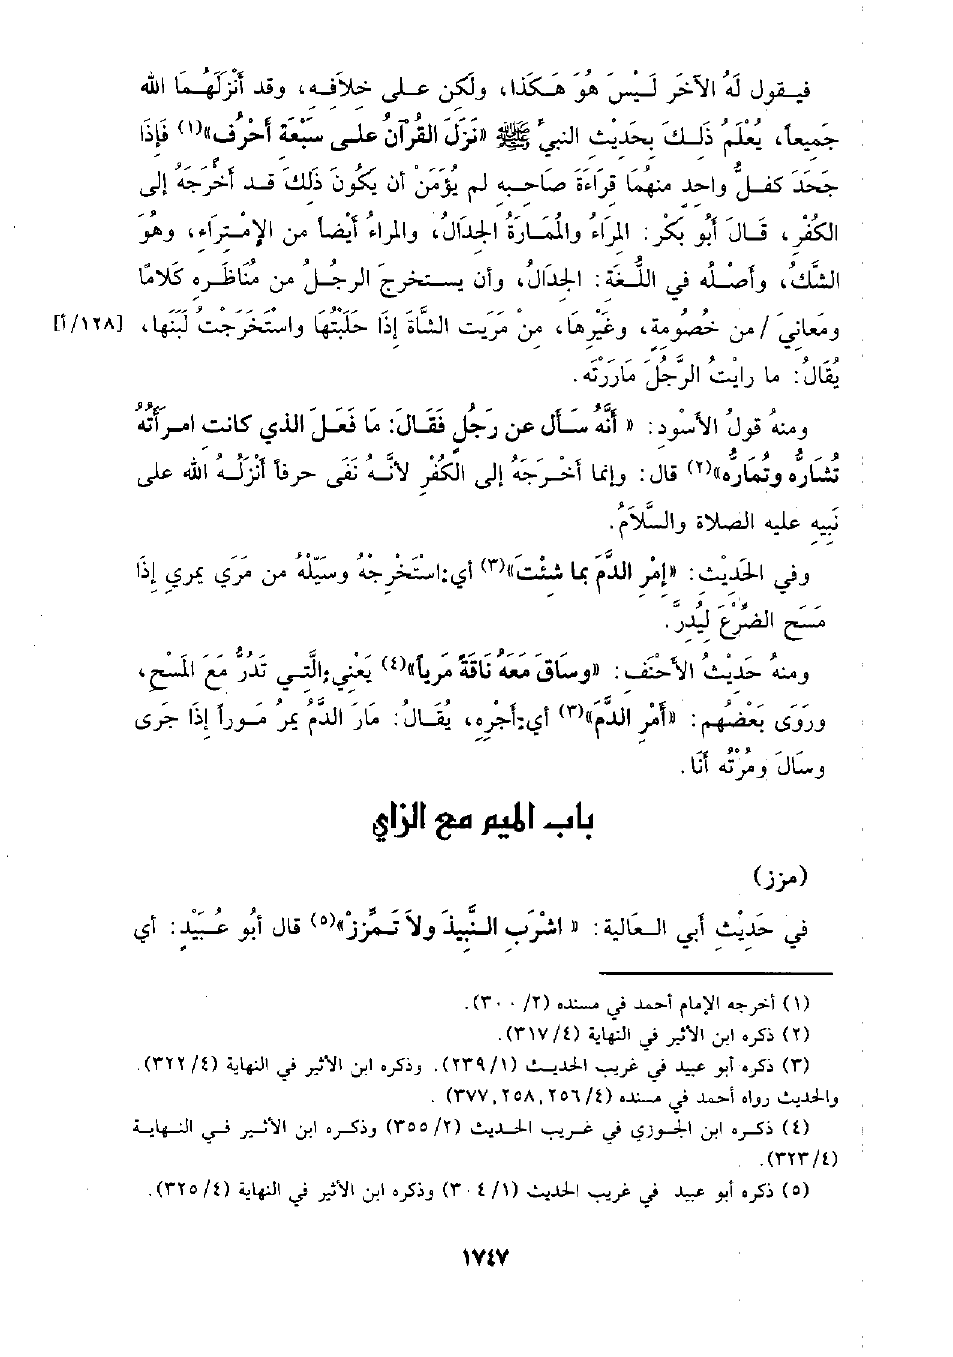 فيقول لَهُ الآخَر لَيْسَ هُوَ هَكَذا، ولَكن على خِلاَفِه، وقد أَنْزَلَهُمَا الله
جَمِيعاً، يُعْلَمُ ذَلكَ بِحَديْث النبيِّ ﷺ «نَزَلَ القُرآنُ عَلى سَبْعَة أَحْرُف»(١) فَإِذَا
جَحَدَ كفلُّ واحِد مِنهُمَا قِرَاءَةَ صَاحبِه لم يُؤمَنْ أن يكُونَ ذَلكَ قد أَخْرَجَهُ إلى
الكُفْر، قَالَ أَبُو بَكْر: المِرَاءُ والمُمَارَةُ الجِدَالُ، والمِراءُ أَيْضاً من الإمْتِراءِ، وهُوَ
الشَّكُ، وأَصْلُه في اللُّغَة: الجِدَالُ، وأن يستخرجَ الرجلُ من مُنَاظَرِه كَلاَمًا
ومَعانِيَ / من خصُومِةٍ، وغَيْرِهَا، مِنْ مَرَيت الشَّاةَ إِذَا حَلَبْتُهَا واسْتَخْرَجْتُ لَبَنَها، [١٢٨/أ]
يُقَالُ: ما رايْتُ الرَّجُلَ مَارَرْتَه.
ومنهُ قولُ الأسْودِ: « أنَّهُ سَأَل عن رَجُلٍ فَقَالَ: مَا فَعَلَ الذي كَانت امرَأَتُهُ
تُشَارُّه وتُمَارُّه»(٢) قال: وإنما أخْرَجَهُ إلى الكُفْرِ لأنَّهُ نَفَى حرفاً أنْزَلَهُ الله على
نَبِيِه عليه الصلاة والسَّلاَمُ.
وفي الحَدِيْثِ: «إِمْرِ الدَّمَ بما شِئْتَ»(٣) أي:اسْتَخْرِجْهُ وسَيِّلْهُ من مَرَي يمرِي إِذَا
مَسَح الضَّرْعَ لِيَدُرَّ.
ومنهُ حَدِيْثُ الأحْنَف: «وسَاقَ مَعَهُ نَاقَةً مَرِياً»(٤) يَعْنِي:الَّتِي تَدُرُّ مَعَ المَسْحِ،
ورَوَى بَعْضُهم: «أَمْرِ الدَّمَ»(٣) أي:أجْرِه، يُقَالُ: مَارَ الدَّمُ يمرُ مَوراً إِذَا جَرَى
وسَالَ ومُرْتُه أنَا.
باب الميم مع الزاي
(مزز)
في حَدِيْثِ أبي العَالية: « اشْرَبِ النَّبِيذَ ولاَ تَمزّزْ»(٥) قال أبُو عُبَيْدٍ: أي
(١) أخرجه الإمام أحمد في مسنده (٢/ ٣٠٠).
(٢) ذكره ابن الأثير في النهاية (٤/ ٣١٧).
(٣) ذكره أبو عبيد في غريب الحديث (١/ ٢٣٩). وذكره ابن الأثير في النهاية (٤/ ٣٢٢).
والحديث رواه أحمد في مسنده (٤/ ٢٥٦، ٢٥٨، ٣٧٧) .
(٤) ذكره ابن الجوزي في غريب الحديث (٢/ ٣٥٥) وذكره ابن الأثير في النهاية
(٤/ ٣٢٣).
(٥) ذكره أبو عبيد في غريب الحديث (١/ ٣٠٤) وذكره ابن الأثير في النهاية (٤/ ٣٢٥).
١٧٤٧